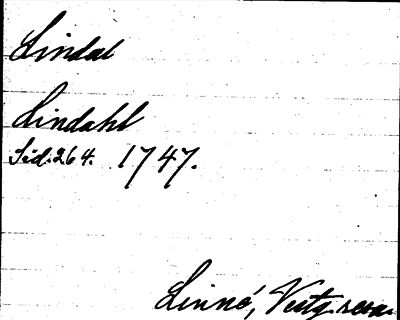 Lindal
Lindahl
Sid. 264. 1747.
Linné, Vestg. resa.